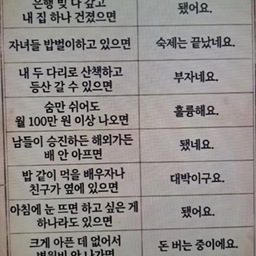 은행 빚 다 갚고
내 집 하나 건졌으면
됐어요.
자녀들 밥벌이하고 있으면
숙제는 끝났네요.
내 두 다리로 산책하고
등산 갈 수 있으면
부자네요.
숨만 쉬어도
월 100만 원 이상 나오면
훌륭해요.
남들이 승진하든 해외가든
배 안 아프면
됐네요.
밥 같이 먹을 배우자나
친구가 옆에 있으면
대박이구요.
아침에 눈 뜨면 하고 싶은 게
하나라도 있으면
됐어요.
크게 아픈 데 없어서
병원비 안 나가면
돈 버는 중이에요.